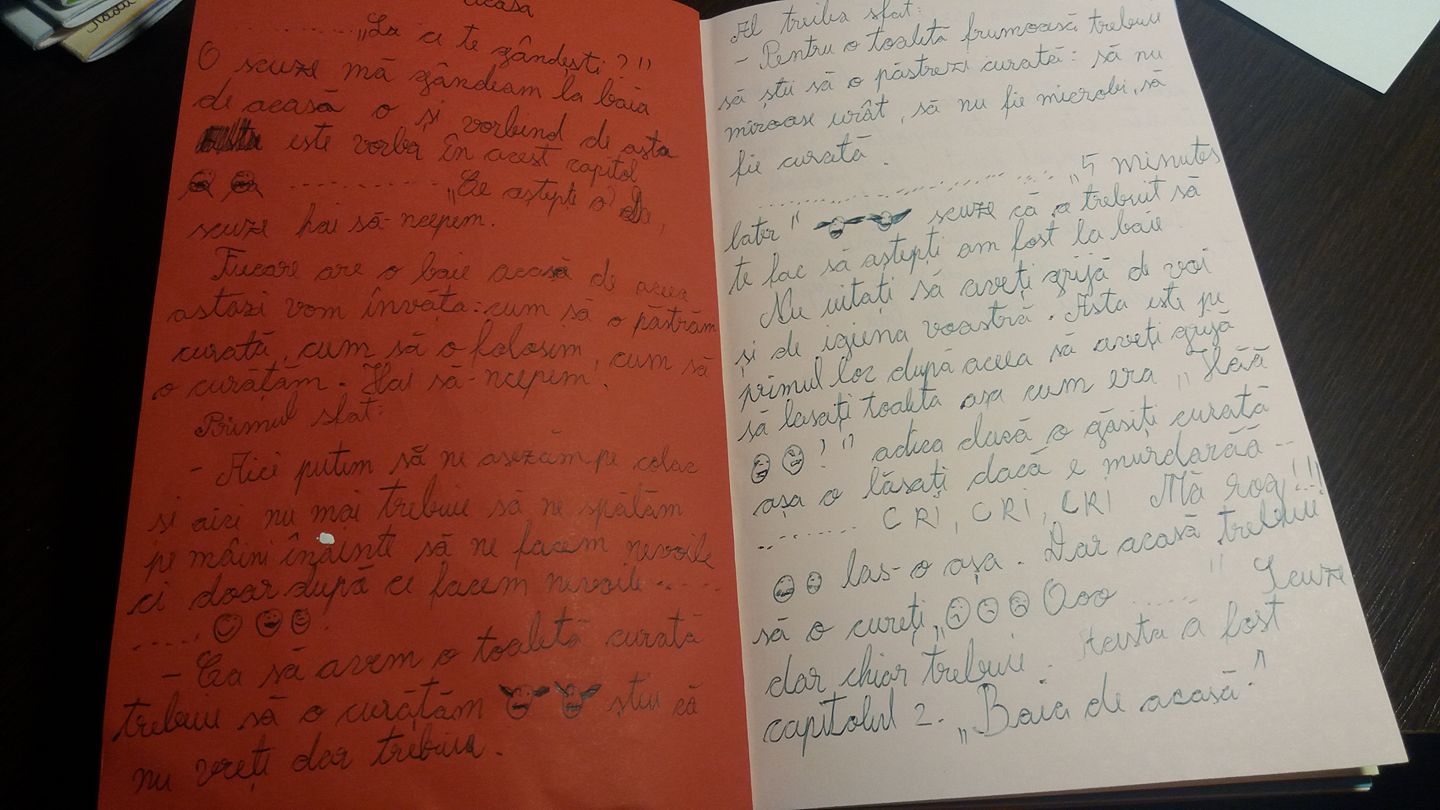 acasa
.......... „La ce te gândesti?”
O scuze mă gândeam la baia
de acasă o și vorbind de asta
este vorba în acest capitol
.......... „Ce aștepti o? Da,
scuze hai să-ncepem.
Fiecare are o baie acasă de aceea
astazi vom învăța: cum să o păstrăm
curată, cum să o folosim, cum să
o curățăm. Hai să-ncepem.
Primul sfat:
- Aici putem să ne asezăm pe colac
și aici nu mai trebuie să ne spălăm
pe mâini înainte să ne facem nevoile
ci doar după ce facem nevoile......
....
- Ca să avem o toaletă curată
trebuie să o curățăm știu că
nu vreți dar trebuie.
Al treilea sfat:
- Pentru o toaletă frumoasă trebuie
să știi să o păstrezi curată: să nu
miroase urât, să nu fie microbi, să
fie curată.
.......... „5 minutes
later” scuze că a trebuit să
te fac să aștepți am fost la baie.
Nu uitați să aveți grijă de voi
și de igiena voastră. Asta este pe
primul loc după aceea să aveți grijă
să lasați toaleta așa cum era „Hăă
?” adica dacă o găsiți curată
așa o lăsați dacă e murdarăă ...
....... CRI, CRI, CRI Mă rog!!!
las-o așa. Dar acasă trebuie
să o cureți „ Ooo ...... ” Scuze
dar chiar trebuie. Acesta a fost
capitolul 2. „Baia de acasă.”